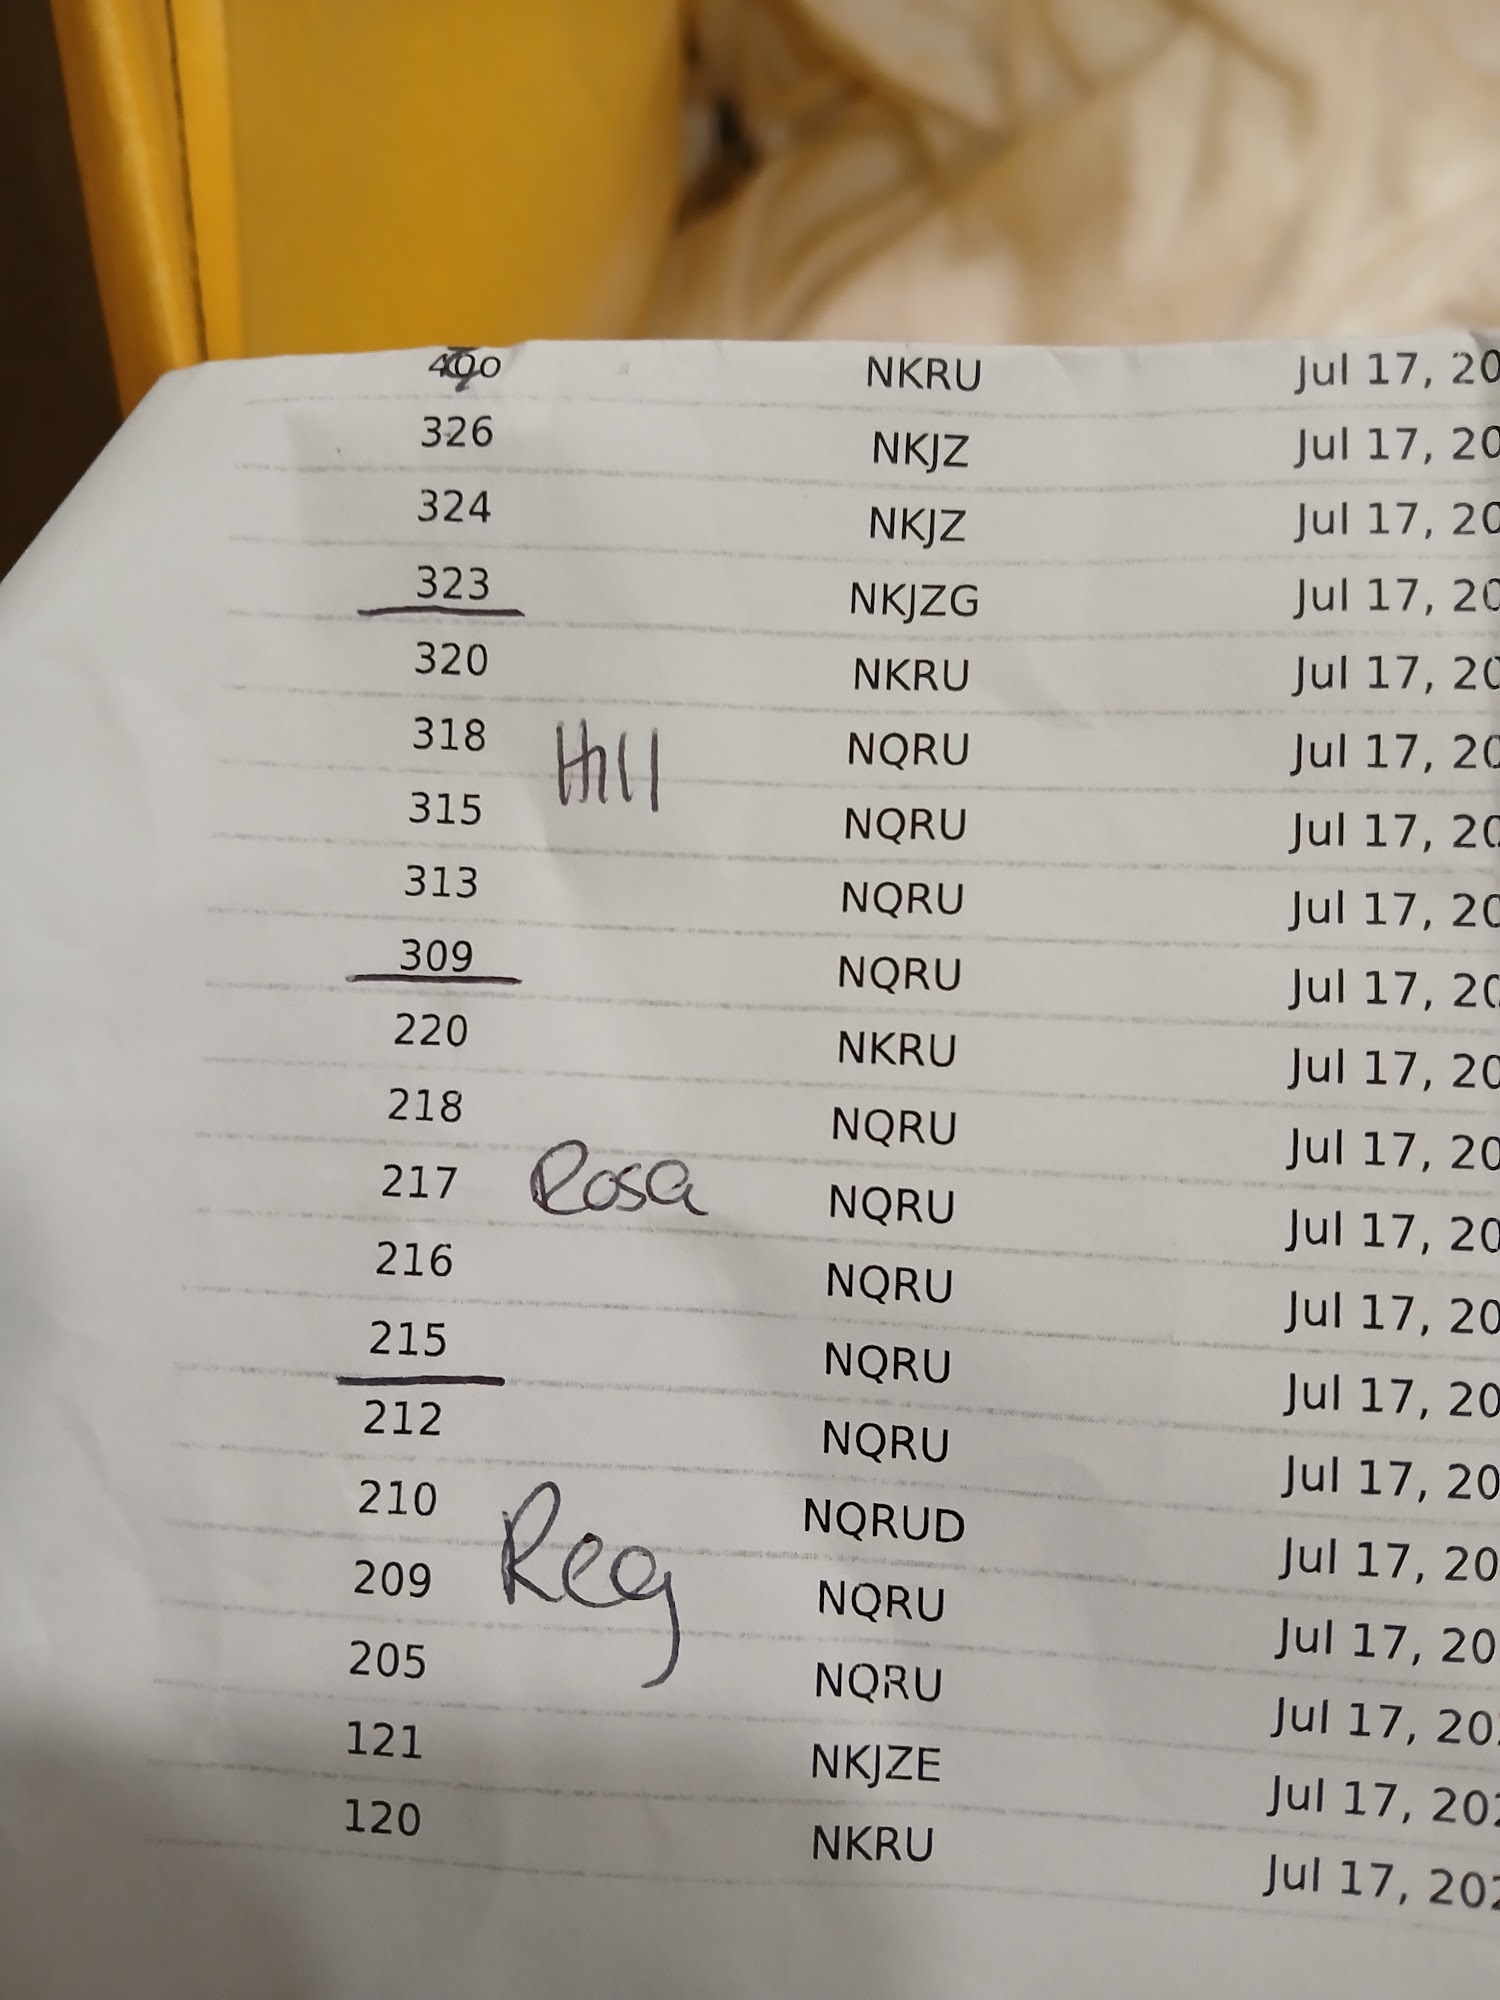 400 NKRU Jul 17, 20
326 NKJZ Jul 17, 20
324 NKJZ Jul 17, 20
323 NKJZG Jul 17, 20
320 NKRU Jul 17, 20
318 NQRU Jul 17, 20
315 NQRU Jul 17, 20
313 NQRU Jul 17, 20
309 NQRU Jul 17, 20
220 NKRU Jul 17, 20
218 NQRU Jul 17, 20
217 Rosa NQRU Jul 17, 20
216 NQRU Jul 17, 20
215 NQRU Jul 17, 20
212 NQRU Jul 17, 20
210 NQRUD Jul 17, 20
Reg
209 NQRU Jul 17, 20
205 NQRU Jul 17, 202
121 NKJZE Jul 17, 202
120 NKRU Jul 17, 202